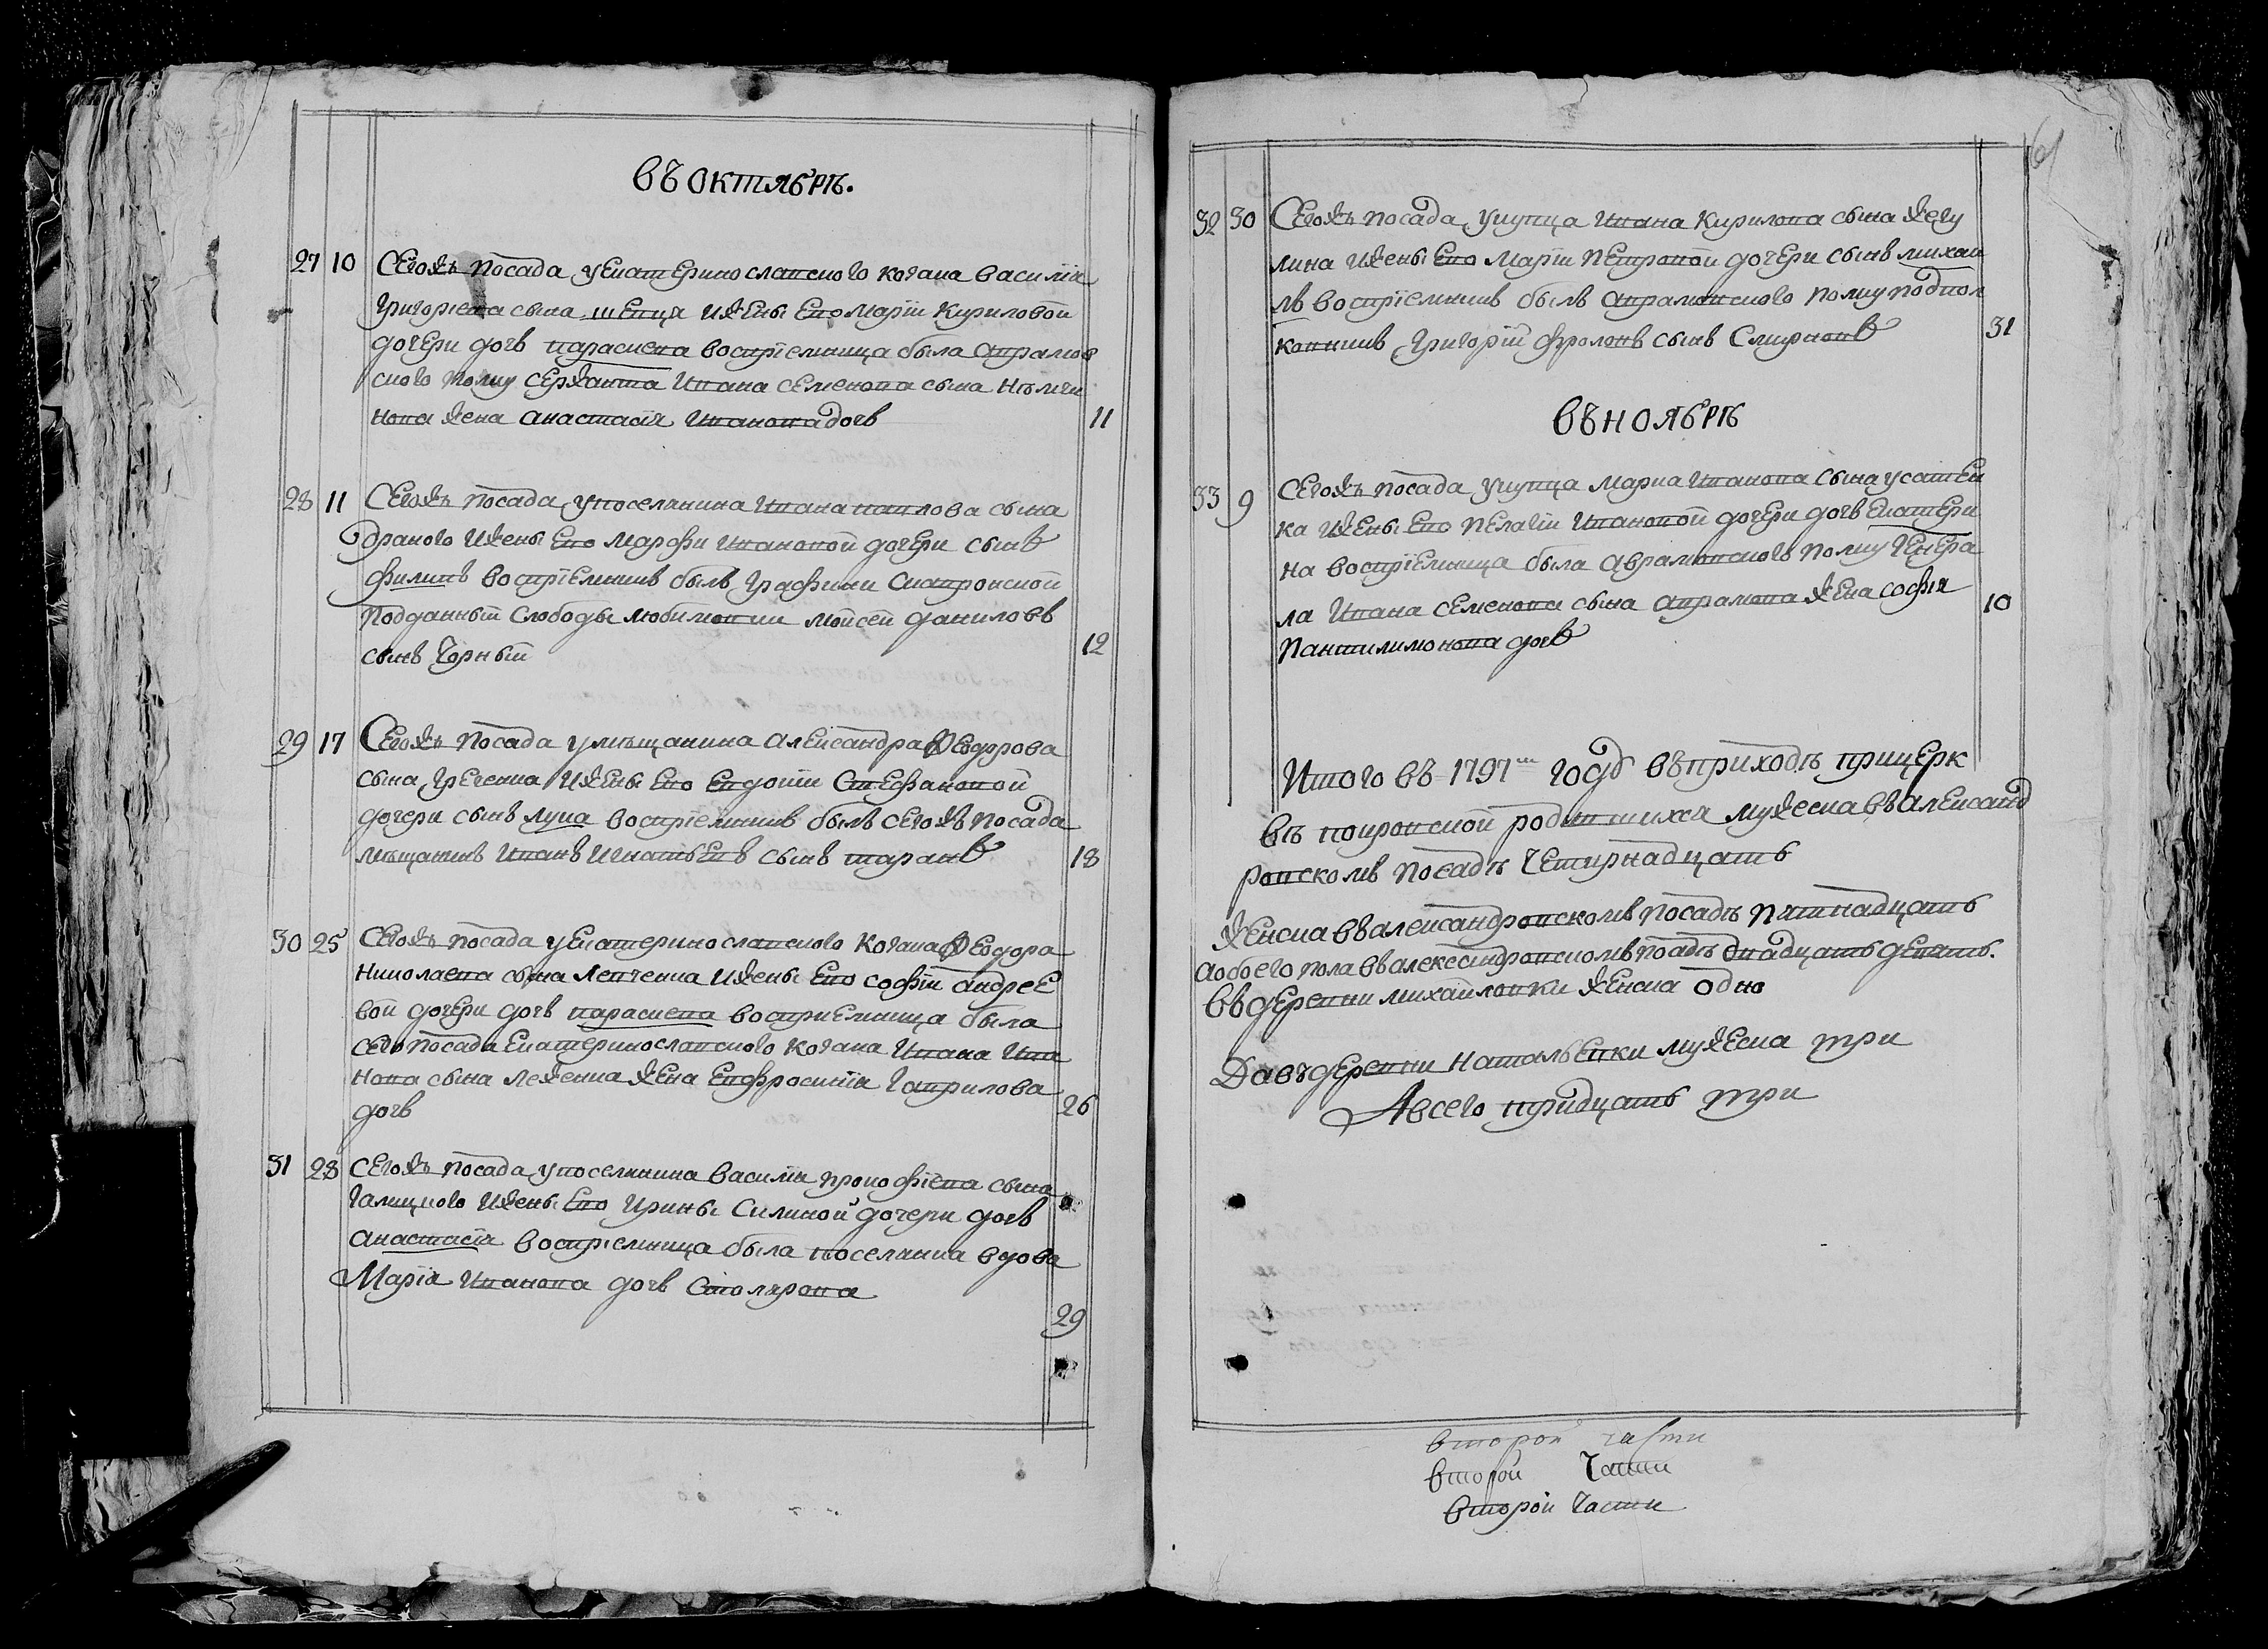 въ октябрѣ.
27 10 Сегожъ посада уекатеринославского козака василія
Григориева сына швпця ижены его маріи Кириловой
дочери дочь параскева воспріемница была апрамов
ского полку сержанта ивана семенова сына
нова жена анастасія иванова дочь 11
28 11 Сегожъ посада упоселянина ивана павлова сына
драного ижены его марфи ивановой дочери сынъ
филипъ воспріемникъ былъ графини скавронской
подданный слободы любимовки мойсей даниловъ
сынъ чорный 12
29 17 Сегожъ посада умѣщанина александра феодорова
сына греченка ижены его евдокіи стефановой
дочери сынъ лука воспріемникъ былъ сегожъ посада
мѣщанинъ иванъ игнатьевъ сынъ таранъ 18
30 25 Сегожъ посада уекатеринославского козака феодора
николаева сына левченка ижены его софіи андрее
вой дочери дочь параскева восприемница была
сего посада екатеринославского козака ивана ива
нова сына леженка жена евфросинія гаврилова
дочь 26
31 28 сегожъ посада упоселянина василія прокофіева сына
галицкого ижены его ирины силиной дочери дочь
анастасія воспріемница была поселянка вдова
Марія иванова дочь столярова
29
61
32 30 Сегожъ посада укупца ивана кирилова сына жегу
лина ижены его маріи петровой дочери сынъ михаи
лъ воспріемникъ былъ апрамовского полку подпол
ковникъ григорій фроловъ сынъ смирновъ 31
въ ноябрѣ
33 9 сегожъ посада укупца марка иванова сына усатен
ка ижены его пелагіи ивановой дочери дочь екатери
на воспріемница была аврамовского полку генера
ла ивана семенова сына апрамова жена софія
пантилимонова дочь 10
Итого въ 1797м годѣ въприходѣ прицерк
въ покровской родившихся мужеска въ александ
ровскомъ посадѣ четирнадцать
женска въ александровскомъ посадѣ пятнадцать
аобоего пола въ александровскомъ посадѣ двадцать девять.
въ деревни михайловки женска одно
Давъдеревни натальевки мужеска три
Авсего тридцать три
второй части
второй части
второй части